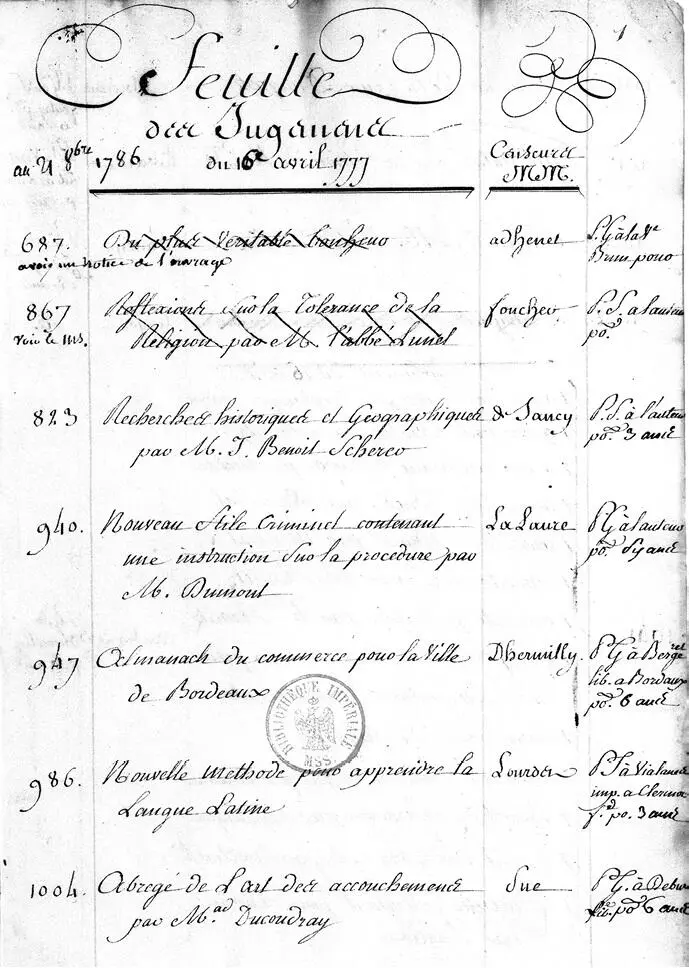 1
Feuille
des Jugemens
au 21 8bre 1786 du 16e avril 1777
Censeurs
MM.
687. Du plus véritable bonheur adhenet P. G. à la Ve
avoir un notice de l'ouvrage Brun pour
867 Reflexions sur la Tolerance de la foucher P. S. a lauteur
voir le ms. Religion par M. l'abbé Lunel po.
823 Recherches historiques et Geographiques de Sancy P. S. à l'auteur
par M. J. Benoit Scherer po. 3 ans
940. Nouveau Stile Criminel contenant La Laure P G à lauteur
une instruction Sur la procedure par po. ans
M. Dumont
947 Almanach du commerce pour la Ville Dhermilly. P G à Bergeret
de Bordeaux lib. a Bordaux
po. 6 ans
BIBLIOTHÈQUE IMPÉRIALE
MSS
986. Nouvelle methode pour apprendre la Lourdet P S à Vialanne
Langue Latine imp. a Clermon
fd. po. 3 ans
1004. Abregé de L'art des accouchemens Sue P G. à Debure
par Mad Ducoudray lib. po. 6 ans